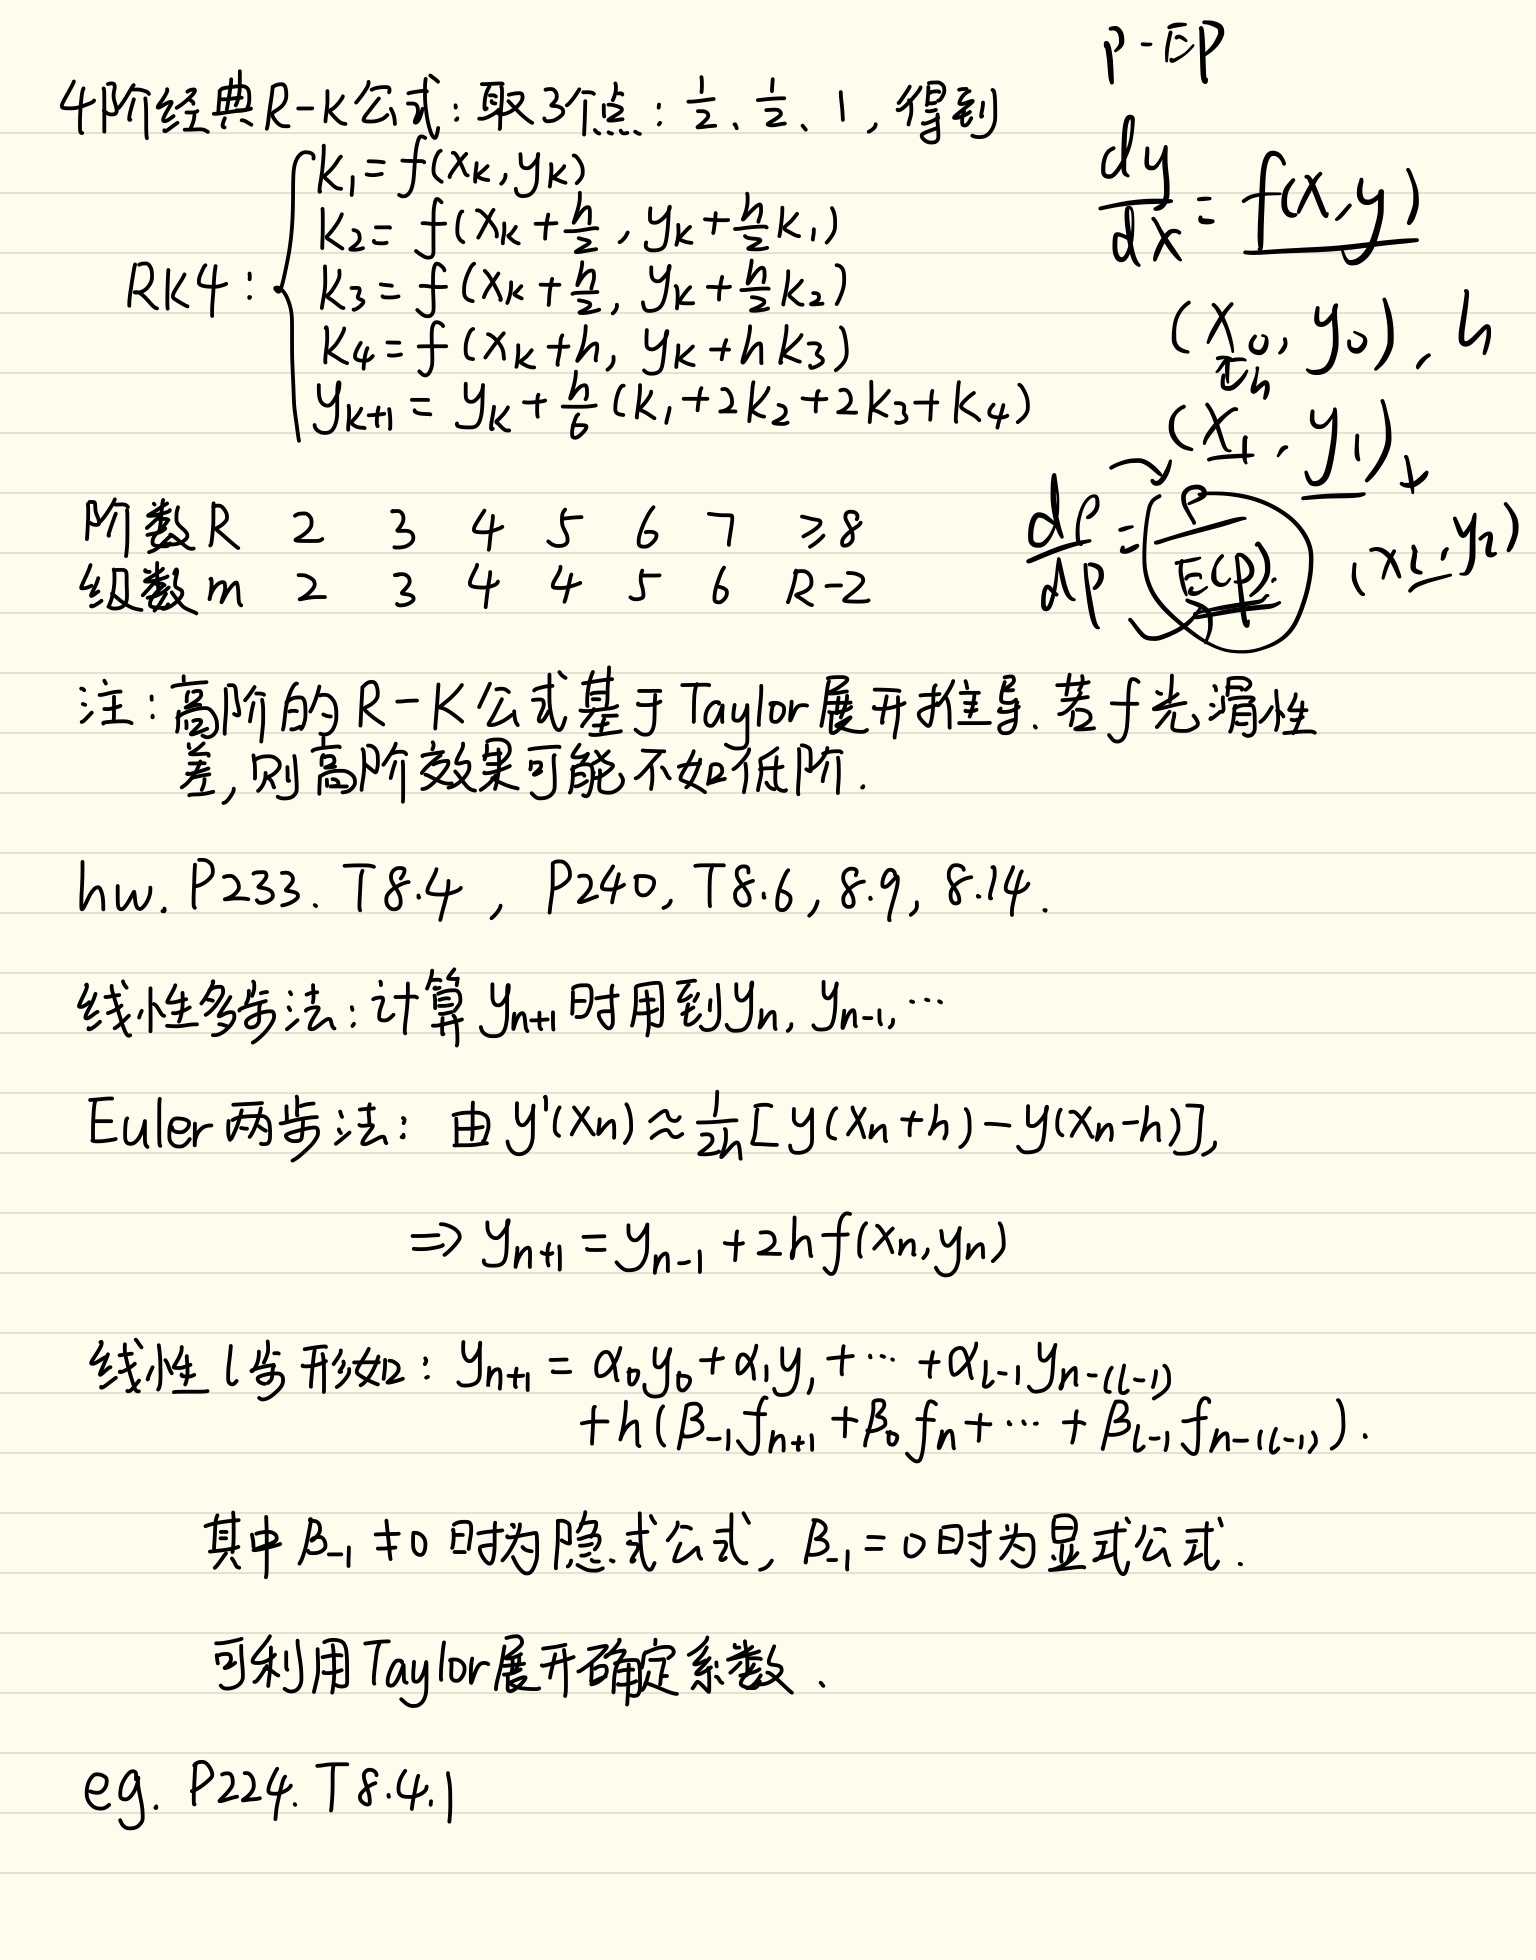 p-EP
4阶经典R-K公式:取3个点:1/2、1/2、1,得到
K₁=f(xₖ,yₖ)
K₂=f(xₖ+h/2,yₖ+h/2 K₁)
RK4:
K₃=f(xₖ+h/2,yₖ+h/2 K₂)
K₄=f(xₖ+h,yₖ+hK₃)
yₖ₊₁=yₖ+h/6(K₁+2K₂+2K₃+K₄)
dy/dx=f(x,y)
(x₀,y₀),h
(x₁,y₁)
dρ/dp=ρ/E(p)
(x₂,y₂)
阶数R 2 3 4 5 6 7 ≥8
组数m 2 3 4 4 5 6 R-2
注:高阶的R-K公式基于Taylor展开推导.若f光滑性
差,则高阶效果可能不如低阶.
hw. P233. T8.4, P240, T8.6, 8.9, 8.14.
线性多步法:计算yₙ₊₁时用到yₙ,yₙ₋₁,…
Euler两步法:由y'(xₙ)≈1/2h[y(xₙ+h)-y(xₙ-h)],
⇒yₙ₊₁=yₙ₋₁+2hf(xₙ,yₙ)
线性l步形如:yₙ₊₁=α₀y₀+α₁y₁+…+α_{l-1}y_{n-(l-1)}
+h(β₋₁fₙ₊₁+β₀fₙ+…+β_{l-1}f_{n-(l-1)}).
其中β₋₁≠0时为隐式公式,β₋₁=0时为显式公式.
可利用Taylor展开确定系数.
eg. P224. T8.4.1